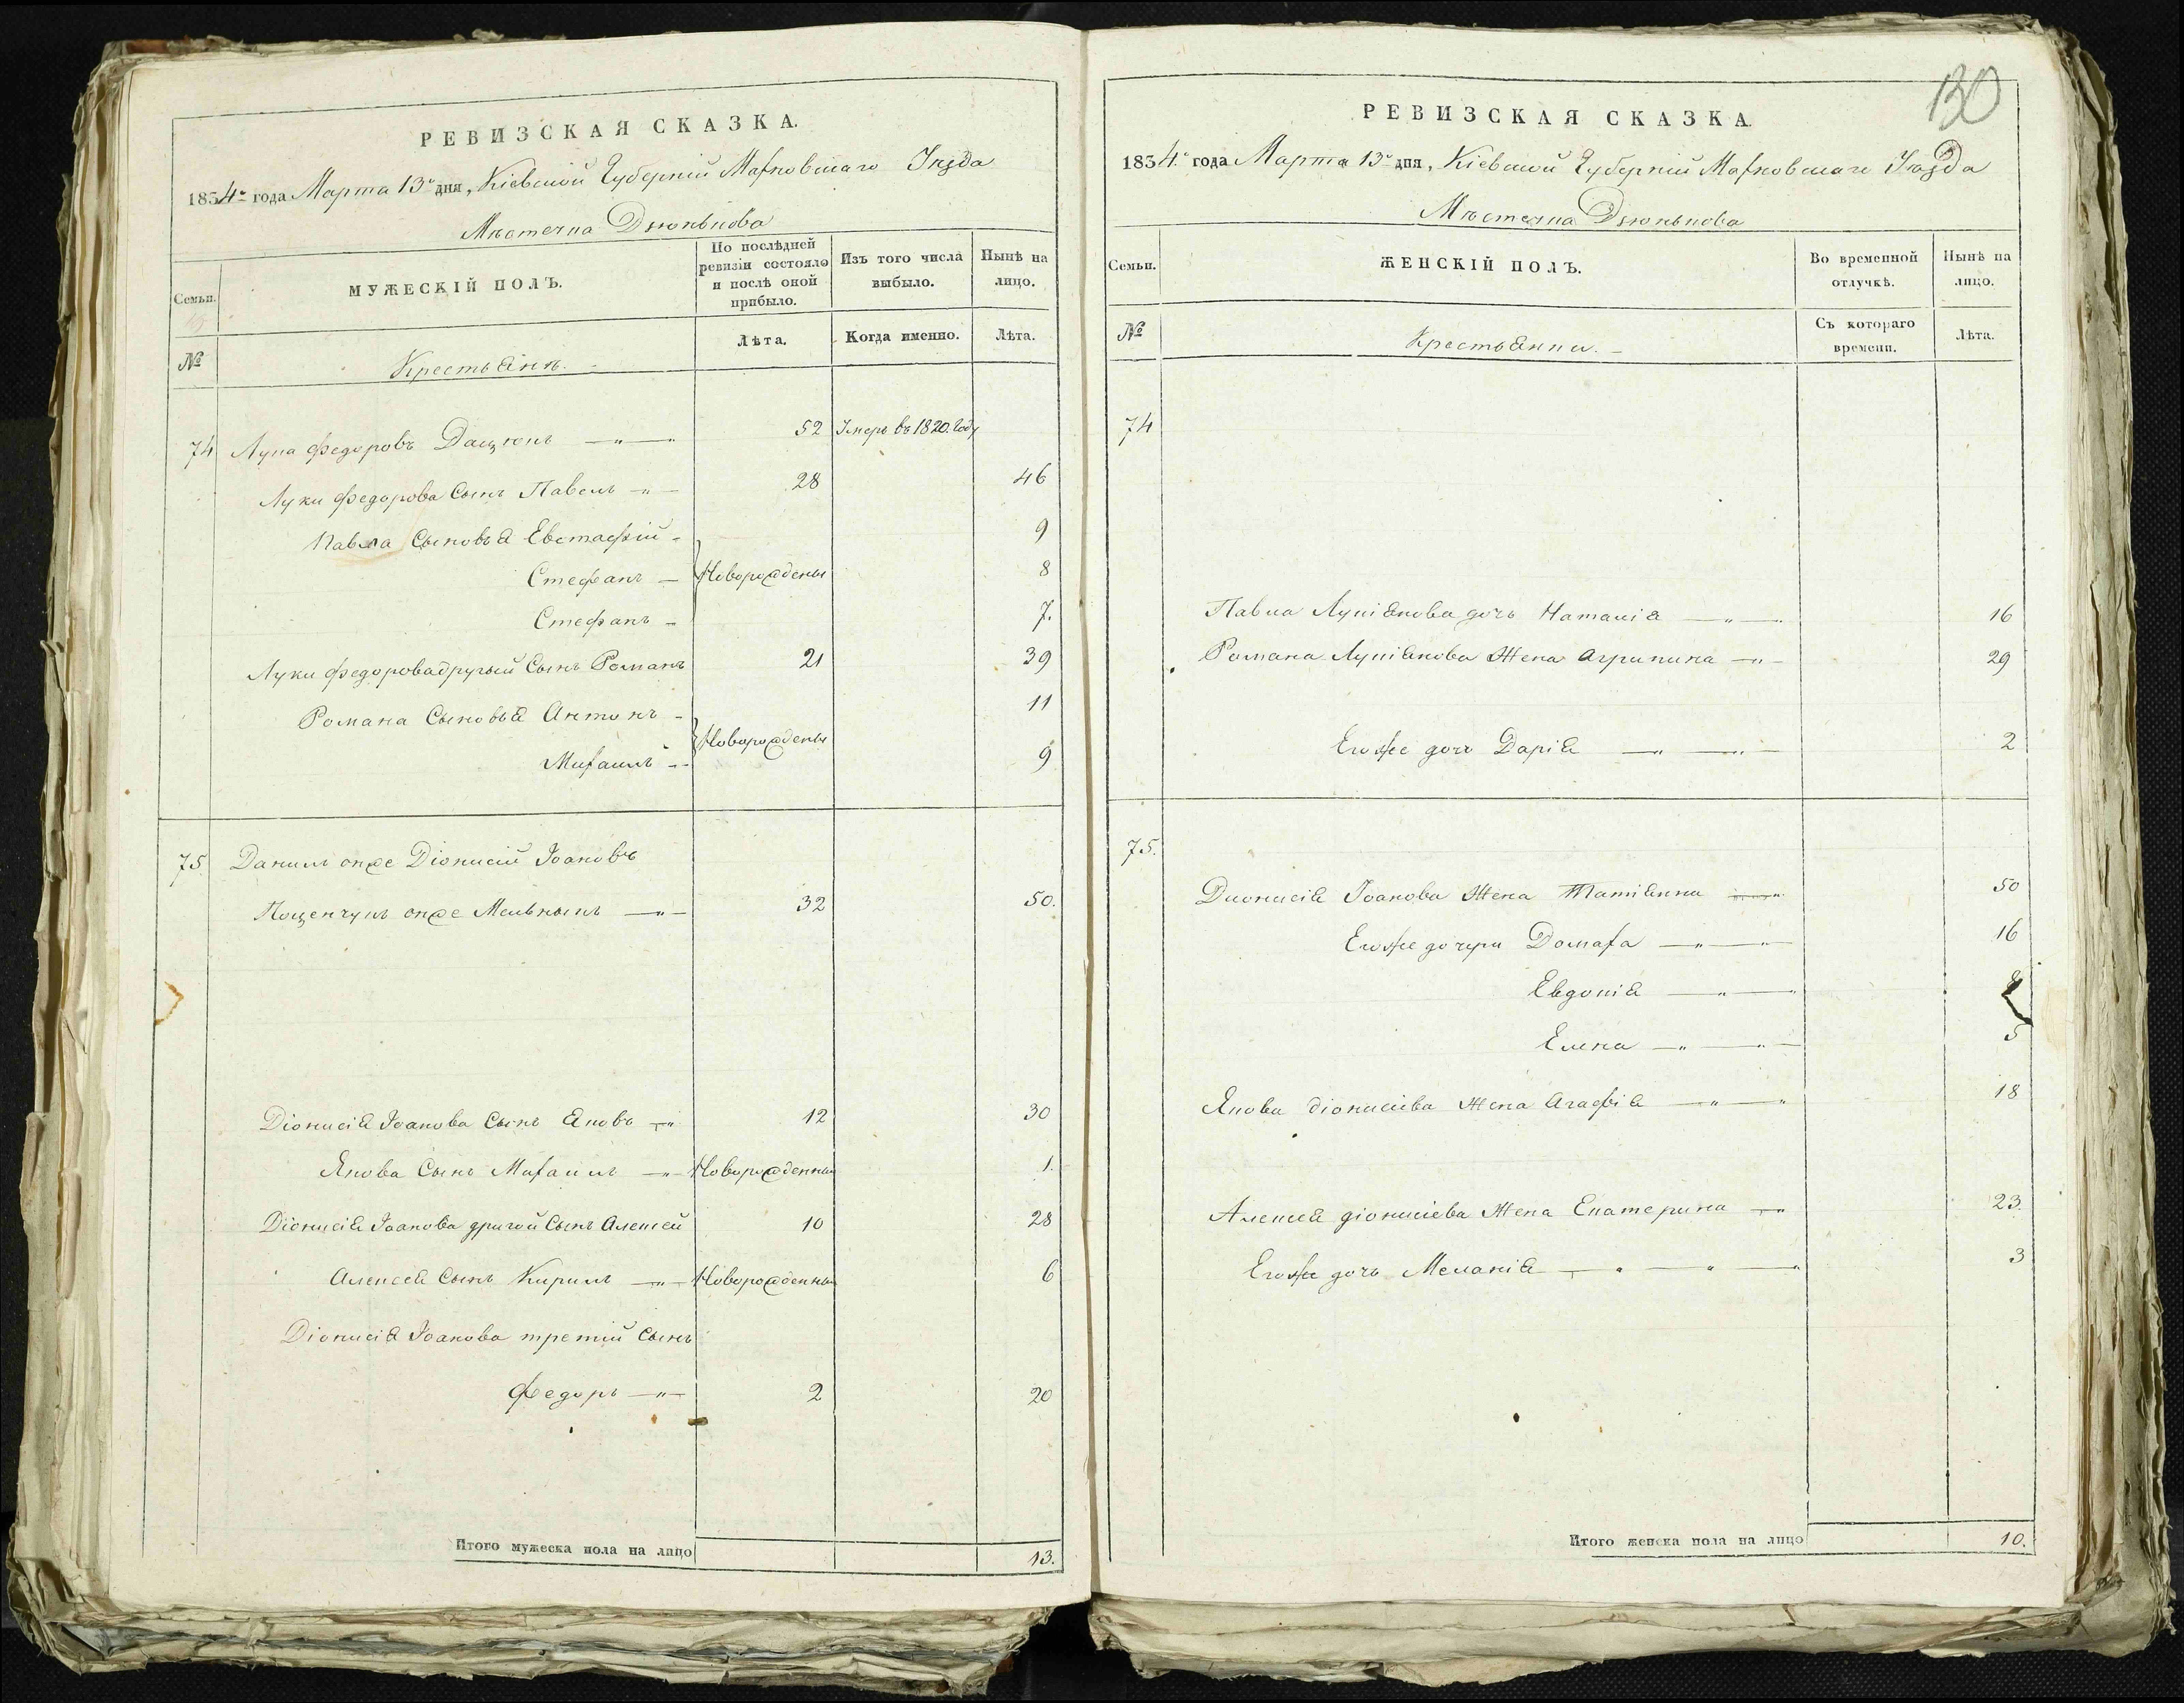 РЕВИЗСКАЯ СКАЗКА.
1834го года Марта 13го дня, Кіевской Губерніи Махновскаго Уѣзда
Мѣстечка Дзюнькова
Семьи.
МУЖЕСКІЙ ПОЛЪ.
По послѣдней ревизіи состояло и послѣ оной прибыло.
Изъ того числа выбыло.
Нынѣ на лицо.
№
Крестьянъ.
Лѣта.
Когда именно.
Лѣта.
74 Лука Федоровъ Дацюкъ 52 Умеръ въ 1820. Году
Луки Федорова Сынъ Павелъ 28 46
Павла Сыновья Евстафій 9
Стефанъ Новорождены 8
Стефанъ 7.
Луки Федорова другый Сынъ Романъ 21 39
Романа Сыновья Антонъ 11
Новорождены
Михаилъ 9
75 Данилъ онже Діонисій Іоановъ
онже Мельныкъ 32 50.
Діонисія Іоанова Сынъ Яковъ 12 30
Якова Сынъ Михаилъ Новорожденны 1.
Діонисія Іоанова другой Сынъ Алексей 10 28
Алексея Сынъ Кирилъ Новорожденны 6
Діонисія Іоанова третій Сынъ
Федоръ 2 20
Итого мужеска пола на лицо 13.
130
РЕВИЗСКАЯ СКАЗКА
1834го года Марта 13го дня, Кіевской Губерніи Махновскаго Уѣзда
Мѣстечка Дзюнькова
Семьи.
ЖЕНСКІЙ ПОЛЪ.
Во временной отлучкѣ.
Нынѣ на лицо.
№
Крестьянки.
Съ котораго времени.
Лѣта.
74
Павла Лукіянова дочь Наталія 16
Романа Лукіянова Жена Агрипина 29
Егоже дочь Дарія 2
75.
Дионисія Іоанова Жена Татіянна 50
Егоже дочери Домаха 16
Евдокія
Елена 5
Якова Діонисіева Жена Агафія 18
Алексея діонисіева Жена Екатерина 23.
Егоже дочь Меланія 3
Итого женска пола на лицо 10.